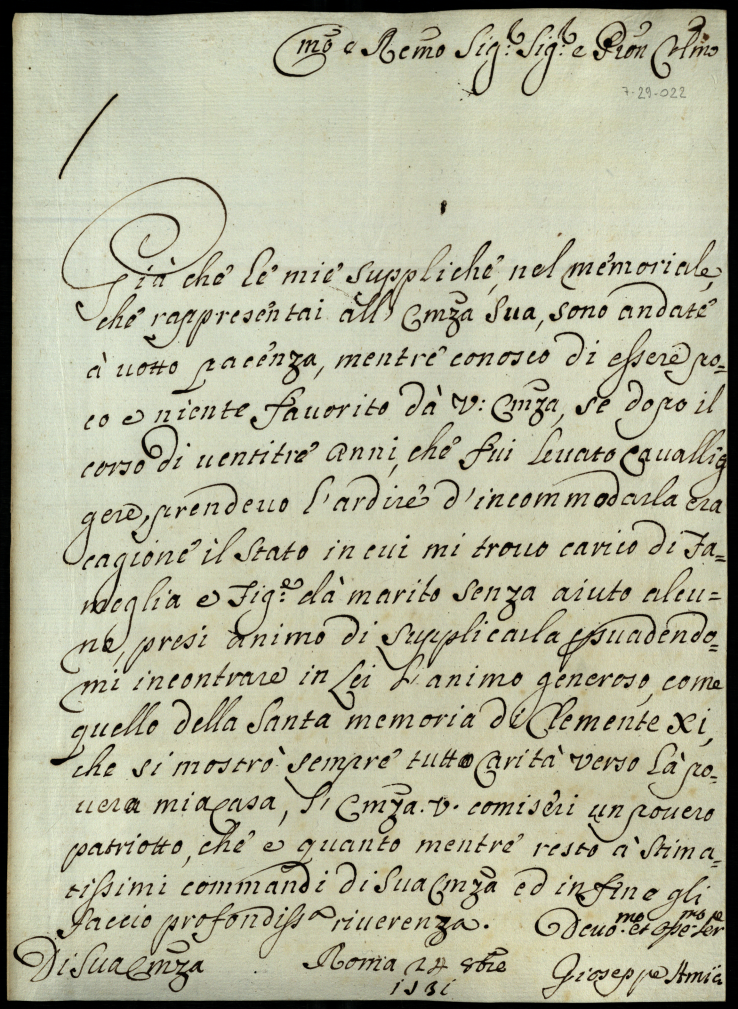 Emo e Remo Sig.r Sig.r e Pron Colmo
7-29-022
Già che le mie suppliche, nel memoriale,
che rappresentai all' Emza Sua, sono andate
à uotto pacenza, mentre conosco di essere po-
co e niente fauorito dà V: Emza, se dopo il
corso di uentitre anni, che fui leuato Cauallig
gere, prendeuo l'ardire d'incommodarla era
cagione il stato in cui mi trouo carico di Fa-
meglia e Fig.e dà marito senza aiuto alcu-
no, presi animo di supplicarla psuadendo-
mi incontrare in Lei l'animo generoso, come
quello della Santa memoria di Clemente XI,
che si mostrò sempre tutto Carità verso la po-
uera mia casa, l' Emza. V. comiseri un pouero
patriotto, che e quanto mentre resto à stima-
tissimi commandi di Sua Emza ed in fine gli
faccio profondiss.a riuerenza. Deuo.mo et
Di Sua Emza Roma 24 8bre Gioseppe Amici
1731